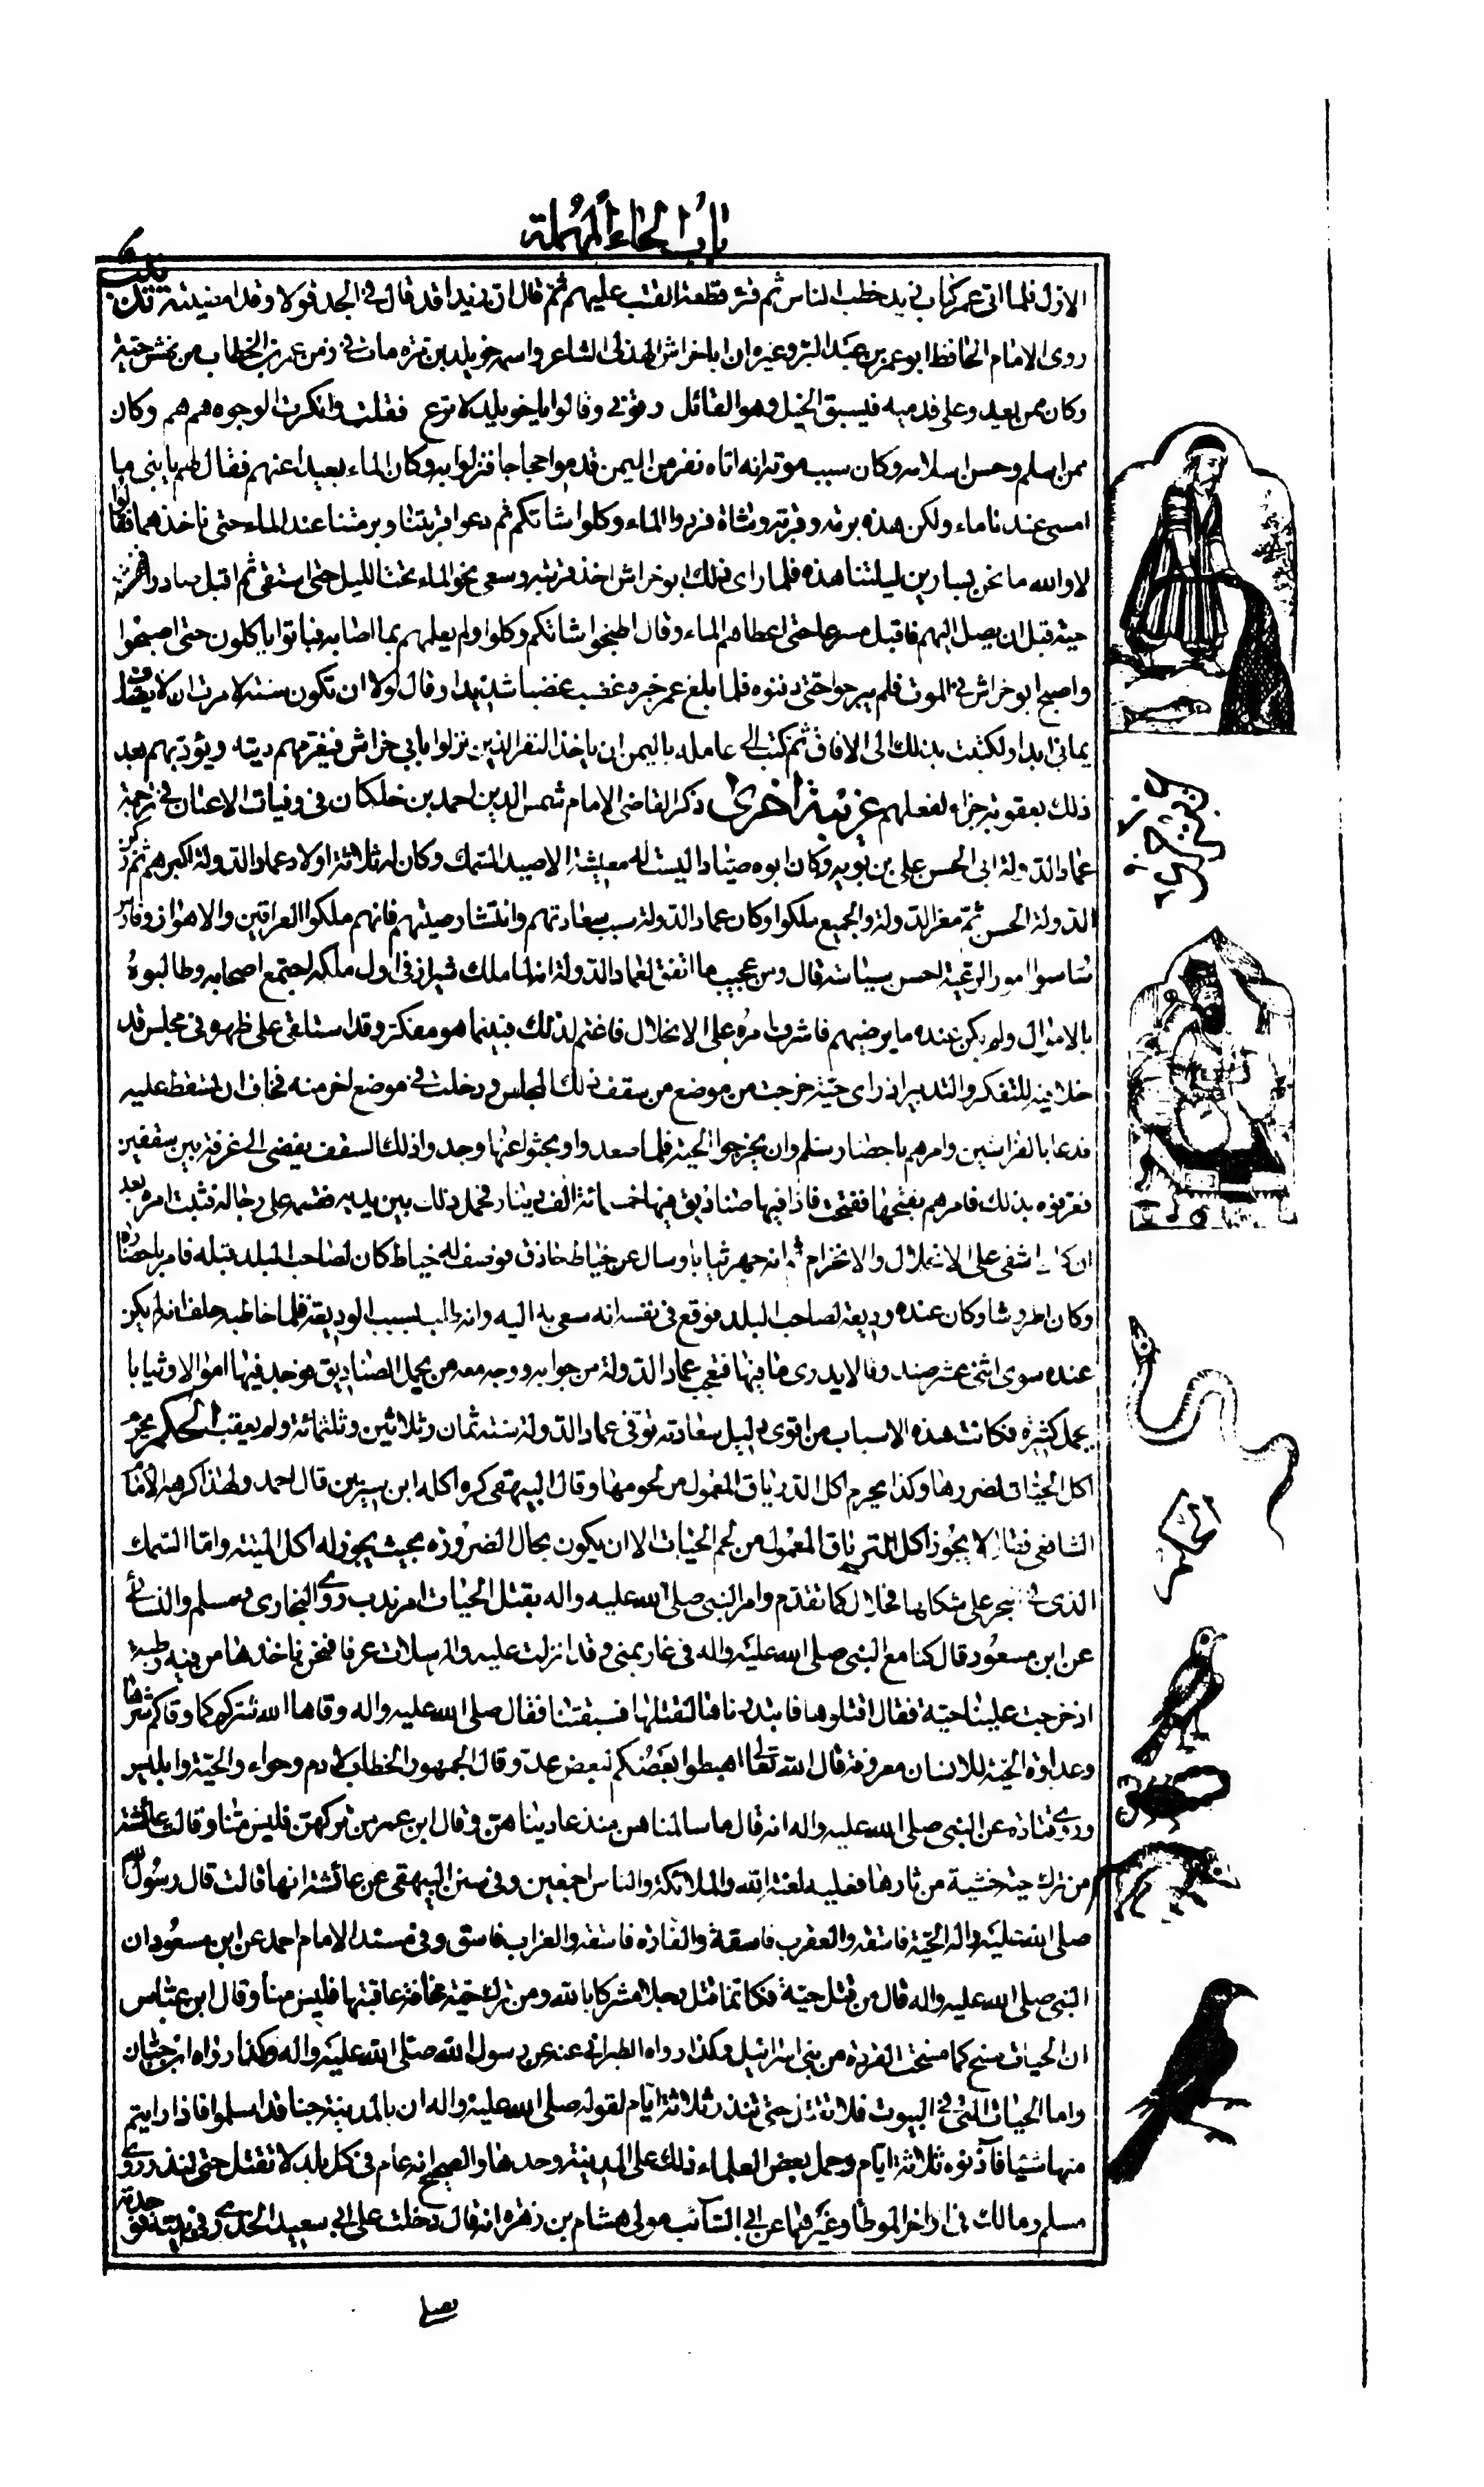 باب الحاء المهملة
الاول فلما اتى عمر كتاب زيد خطب الناس ثم قال ان زيدا قد قال في الجد قولا وقد امضيته
روى الامام الحافظ ابو عمر بن عبد البر وغيره ان ابا خراش الهذلي الشاعر واسمه خويلد بن مرة مات في زمن عمر بن الخطاب من نهش حية
وكان ممن يعدو على قدميه فيسبق الخيل وهو القائل رفوني وقالوا يا خويلد لا ترع فقلت وانكرت الوجوه هم هم وكان
ممن اسلم وحسن اسلامه وكان سبب موته انه اتاه نفر من اليمن قدموا حجاجا فنزلوا به وكان الماء بعيدا عنهم فقال لهم يا بني ما
امسى عندنا ماء ولكن هذه برمة وقربة وشاة فردوا الماء وكلوا شاتكم ثم دعوا قربتنا وبرمتنا عند الماء حتى ناخذهما فقالوا
لا والله ما نحن بسارين ليلتنا هذه فلما راى ذلك ابو خراش اخذ قربته وسعى نحو الماء تحت الليل حتى استقى ثم اقبل صادرا فنهشته
حية قبل ان يصل اليهم فاقبل مسرعا حتى اعطاهم الماء وقال اطبخوا شاتكم وكلوا ولم يعلمهم بما اصابه فباتوا ياكلون حتى اصبحوا
واصبح ابو خراش في الموت فلم يبرحوا حتى دفنوه فلما بلغ عمر خبره غضب غضبا شديدا وقال لولا ان تكون سنة لامرت ان لا يضاف
يماني ابدا ولكتبت بذلك الى الافاق ثم كتب الى عامله باليمن ان ياخذ النفر الذين نزلوا بابي خراش فيغرمهم ديته ويؤدبهم بعد
ذلك بعقوبة جزاء لفعلهم غريبة اخرى ذكر القاضي الامام شمس الدين احمد بن خلكان في وفيات الاعيان في ترجمة
عماد الدولة ابي الحسن علي بن بويه وكان ابوه صيادا ليست له معيشة الا صيد السمك وكان له ثلاثة اولاد عماد الدولة اكبرهم ثم ركن
الدولة الحسن ثم معز الدولة والجميع ملكوا وكان عماد الدولة سبب سعادتهم وانتشار صيتهم فانهم ملكوا العراقين والاهواز وفارس
فساسوا امور الرعية احسن سياسة قال ومن عجيب ما اتفق لعماد الدولة انه لما ملك شيراز في اول ملكه اجتمع اصحابه وطالبوه
بالاموال ولم يكن عنده ما يرضيهم فاشرف امره على الانحلال فاغتم لذلك فبينما هو مفكر وقد استلقى على ظهره في مجلس قد
خلا فيه للتفكر والتدبير اذ راى حية خرجت من موضع من سقف ذلك المجلس ودخلت في موضع اخر منه فخاف ان تسقط عليه
فدعا بالفراشين وامرهم باحضار سلم وان يخرجوا الحية فلما صعدوا وبحثوا عنها وجدوا ذلك السقف يفضي الى غرفة بين سقفين
فعرفوه بذلك فامرهم بفتحها ففتحت فاذا فيها صناديق فيها خمسمائة الف دينار فحمل ذلك بين يديه فقسمه على رجاله فثبت امره بعد
ان كان اشفى على الانحلال والانخرام ثم انه جهز ثيابا وسال عن خياط حاذق فوصف له خياط كان لصاحب البلد قبله فامر باحضاره
وكان اطروشا وكان عنده وديعة لصاحب البلد فوقع في نفسه انه سعي به اليه وانه طالبه بسبب الوديعة فلما خاطبه حلف انه لم يكن
عنده سوى اثني عشر صند وقا لا يدرى ما فيها فعجب عماد الدولة من جوابه ووجه معه من يحمل الصناديق فوجد فيها اموالا وثيابا
بجمل كثيرة فكانت هذه الاسباب من اقوى دليل سعادته توفي عماد الدولة سنة ثمان وثلاثين وثلثمائة ولم يعقب الحكم يحرم
اكل الحيات لضررها وكذا يحرم اكل الدرياق المعمول من لحومها وقال البيهقي كره اكله ابن سيرين قال احمد ولهذا كرهه الامام
الشافعي فقال لا يجوز اكل الترياق المعمول من لحم الحيات الا ان يكون بحال الضرورة بحيث يجوز له اكل الميتة واما السمك
الذي في البحر على شكلها فحلال كما تقدم وامر النبي صلى الله عليه واله بقتل الحيات امر ندب روى البخاري ومسلم والنسائي
عن ابن مسعود قال كنا مع النبي صلى الله عليه واله في غار بمنى وقد انزلت عليه والمرسلات عرفا فنحن ناخذها من فيه رطبة
اذ خرجت علينا حية فقال اقتلوها فابتدرناها لنقتلها فسبقتنا فقال صلى الله عليه واله وقاها الله شركم كما وقاكم شرها
وعداوة الحية للانسان معروفة قال الله تعالى اهبطوا بعضكم لبعض عدو قال الجمهور الخطاب لادم وحواء والحية وابليس
وروى قتادة عن النبي صلى الله عليه واله انه قال ما سالمناهن منذ عاديناهن وقال ابن عمر من تركهن فليس منا وقالت عائشة
من ترك حية خشية من ثارها فعليه لعنة الله والملائكة والناس اجمعين وفي سنن البيهقي عن عائشة انها قالت قال رسول الله
صلى الله عليه واله الحية فاسقة والعقرب فاسقة والفارة فاسقة والغراب فاسق وفي مسند الامام احمد عن ابن مسعود ان
النبي صلى الله عليه واله قال من قتل حية فكانما قتل رجلا مشركا بالله ومن ترك حية مخافة عاقبتها فليس منا وقال ابن عباس
ان الحيات مسخ كما مسخت القردة من بني اسرائيل وكذا رواه الطبراني عنه عن رسول الله صلى الله عليه واله وكذا رواه ابن حبان
واما الحيات التي في البيوت فلا تقتل حتى تنذر ثلاثة ايام لقوله صلى الله عليه واله ان بالمدينة جنا قد اسلموا فاذا رايتم
منها شيئا فآذنوه ثلاثة ايام وحمل بعض العلماء ذلك على المدينة وحدها والصحيح انه عام في كل بلد لا تقتل حتى تنذر روى
مسلم ومالك في اواخر الموطأ وغيرهما عن ابي السائب مولى هشام بن زهرة انه قال دخلت على ابي سعيد الخدري في بيته فوجدته
يصلي